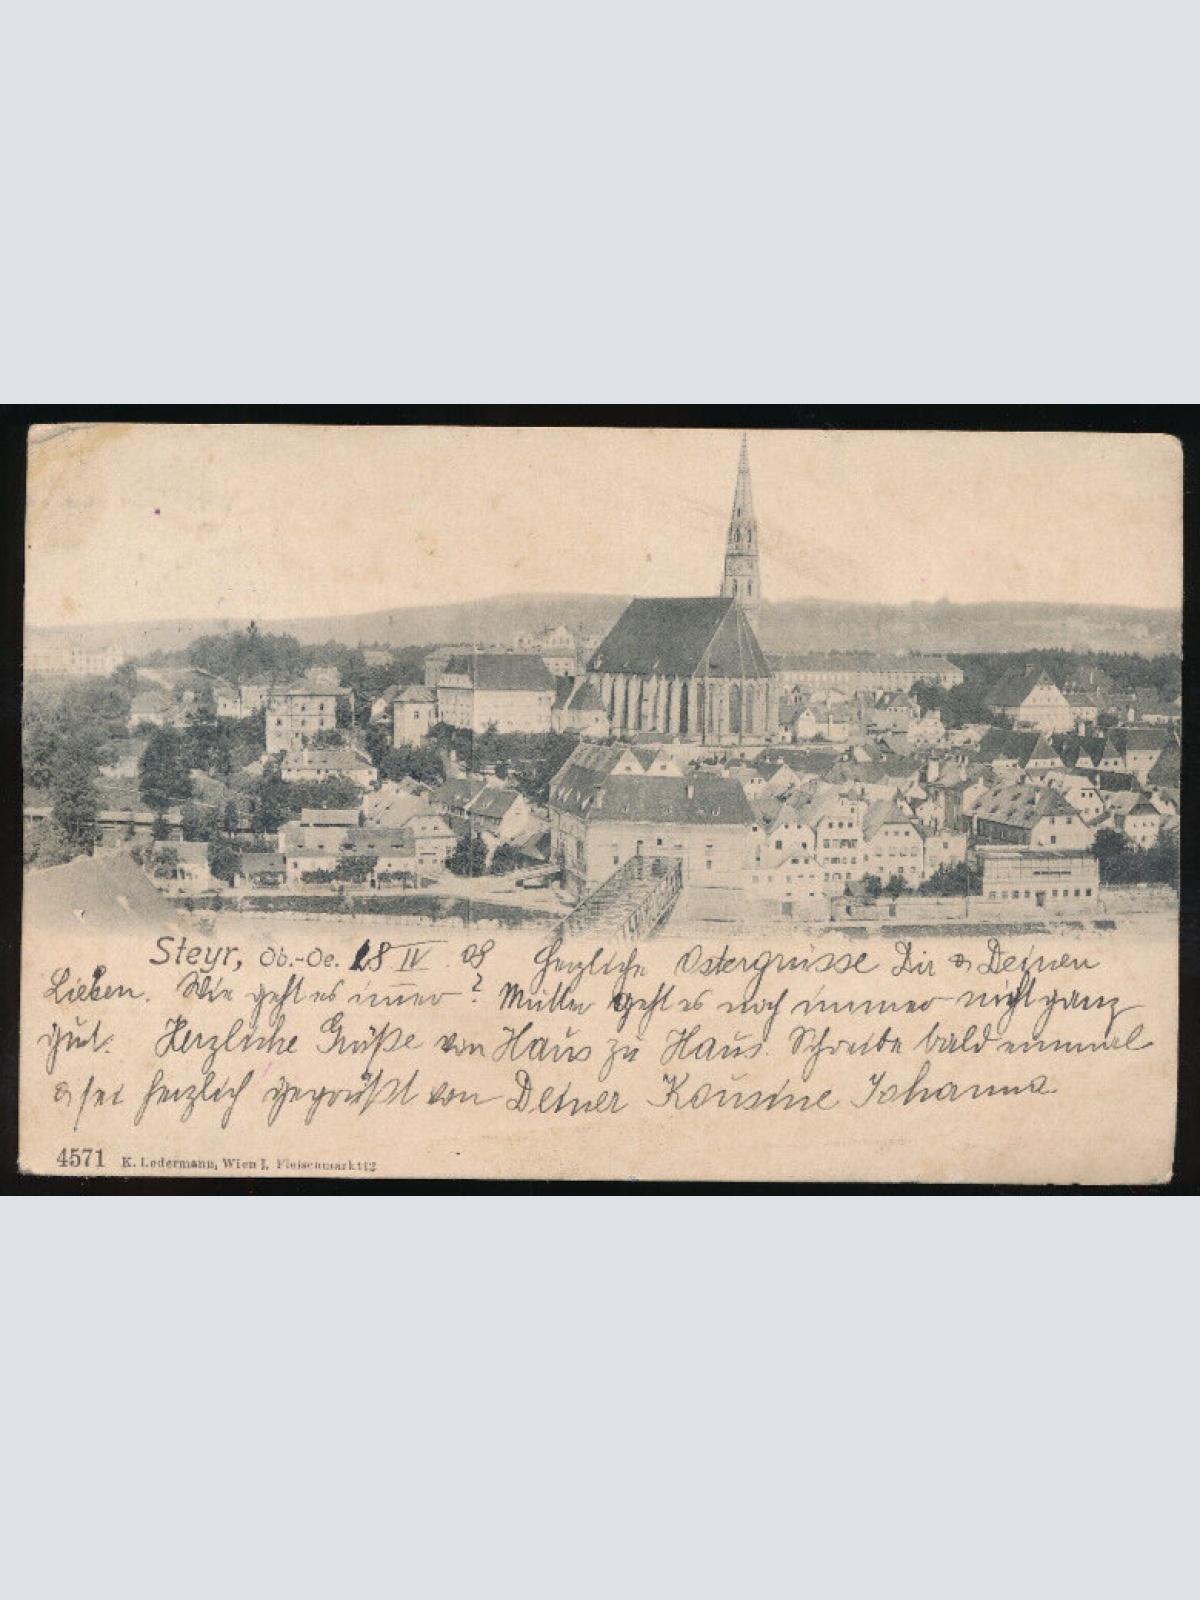 Steyr, Ob.-Oe. 18 IV. 08 Herzliche Ostergrüsse Dir & Deinen
Lieben. Wie geht es immer? Mutter geht es noch immer nicht ganz
gut. Herzliche Grüße von Haus zu Haus. Schreibe bald einmal
& sei herzlich gegrüßt von Deiner Kousine Johanna
4571 K. Ledermann, Wien I, Fleischmarkt 12